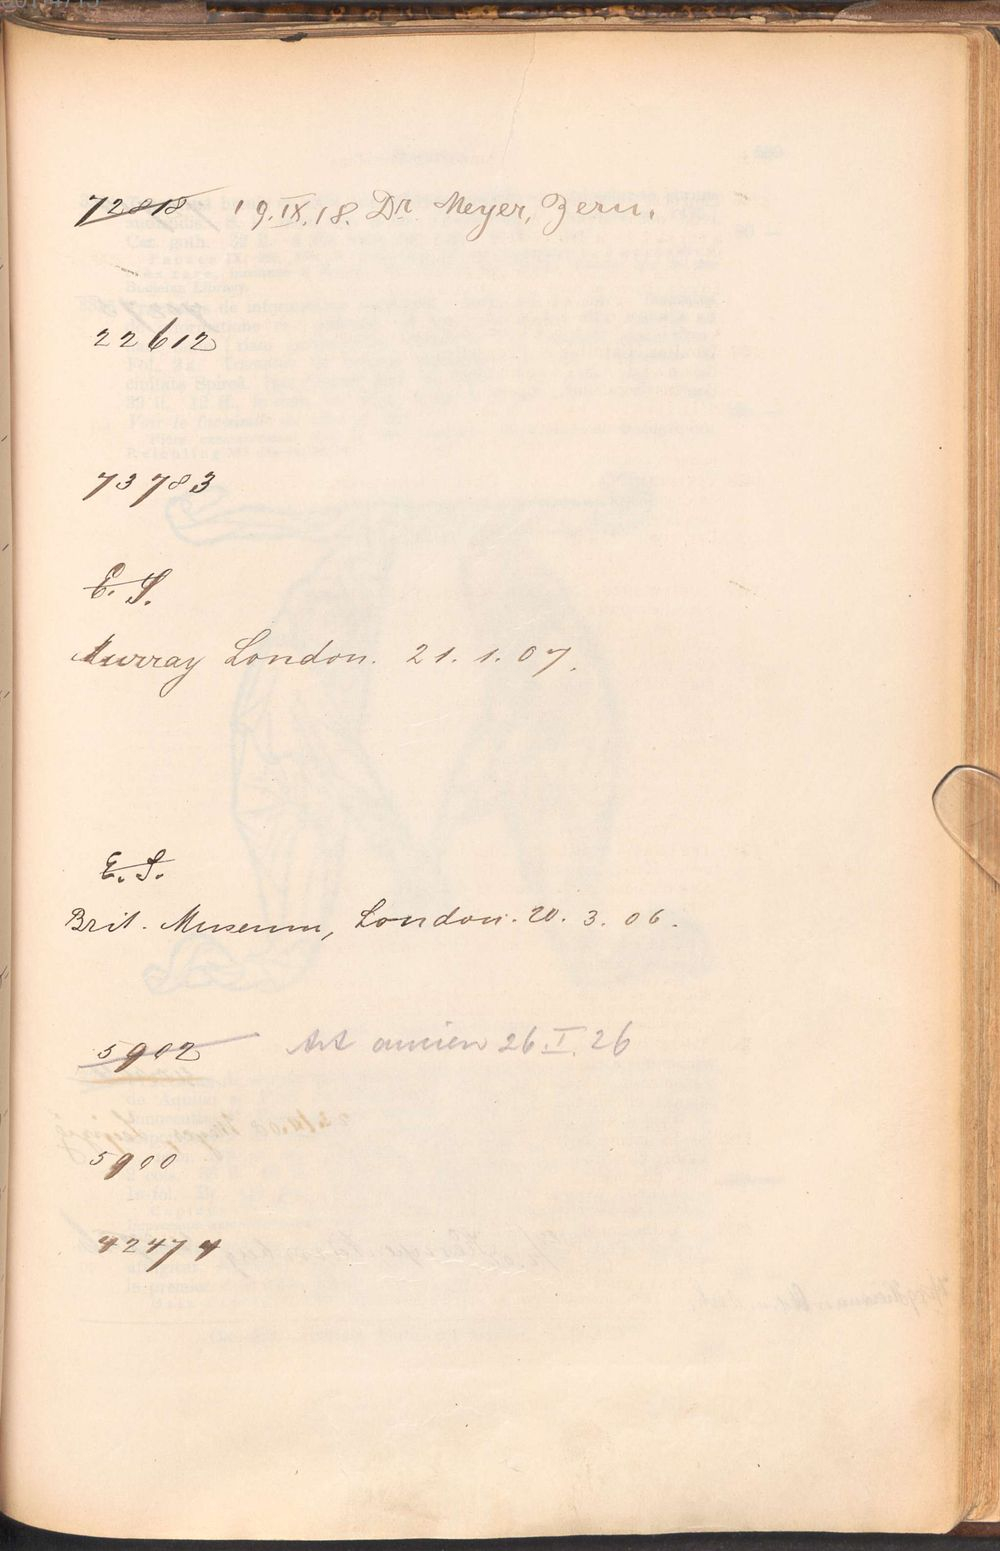 72818 19.IX.18. Dr Meyer, Bern.
22612
73783
E. S.
Murray London. 21. 1. 07.
E. S.
Brit. Museum, London. 20. 3. 06.
5902 Art ancien 26.I.26
5900
42474